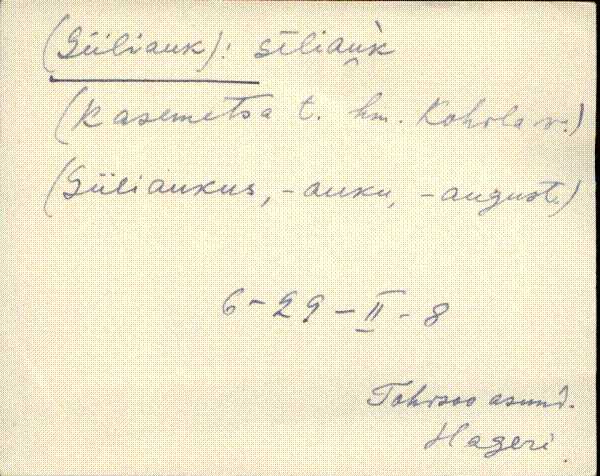 (Siiliauk): sīliau̯k̀
(Kasemetsa t. hm. Kohila v.)
(Siiliaukus, -auku, -august.)
6-29-II-8
Tohisoo asund.
Hageri.